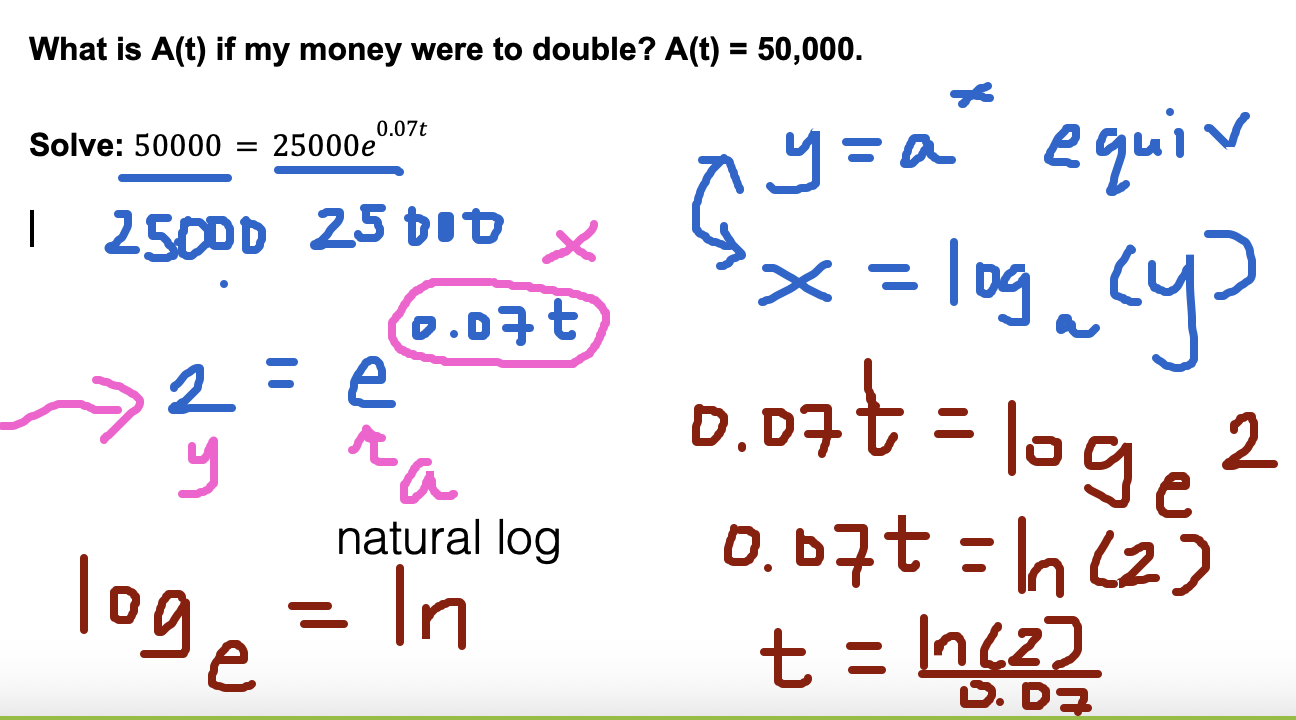 What is A(t) if my money were to double? A(t) = 50,000.
Solve: 50000 = 25000e^0.07t
25000 25000
x
2 = e^0.07t
y a
natural log
log_e = ln
y = a^x equiv
x = log_a (y)
0.07t = log_e 2
0.07t = ln(2)
t = ln(2)
0.07